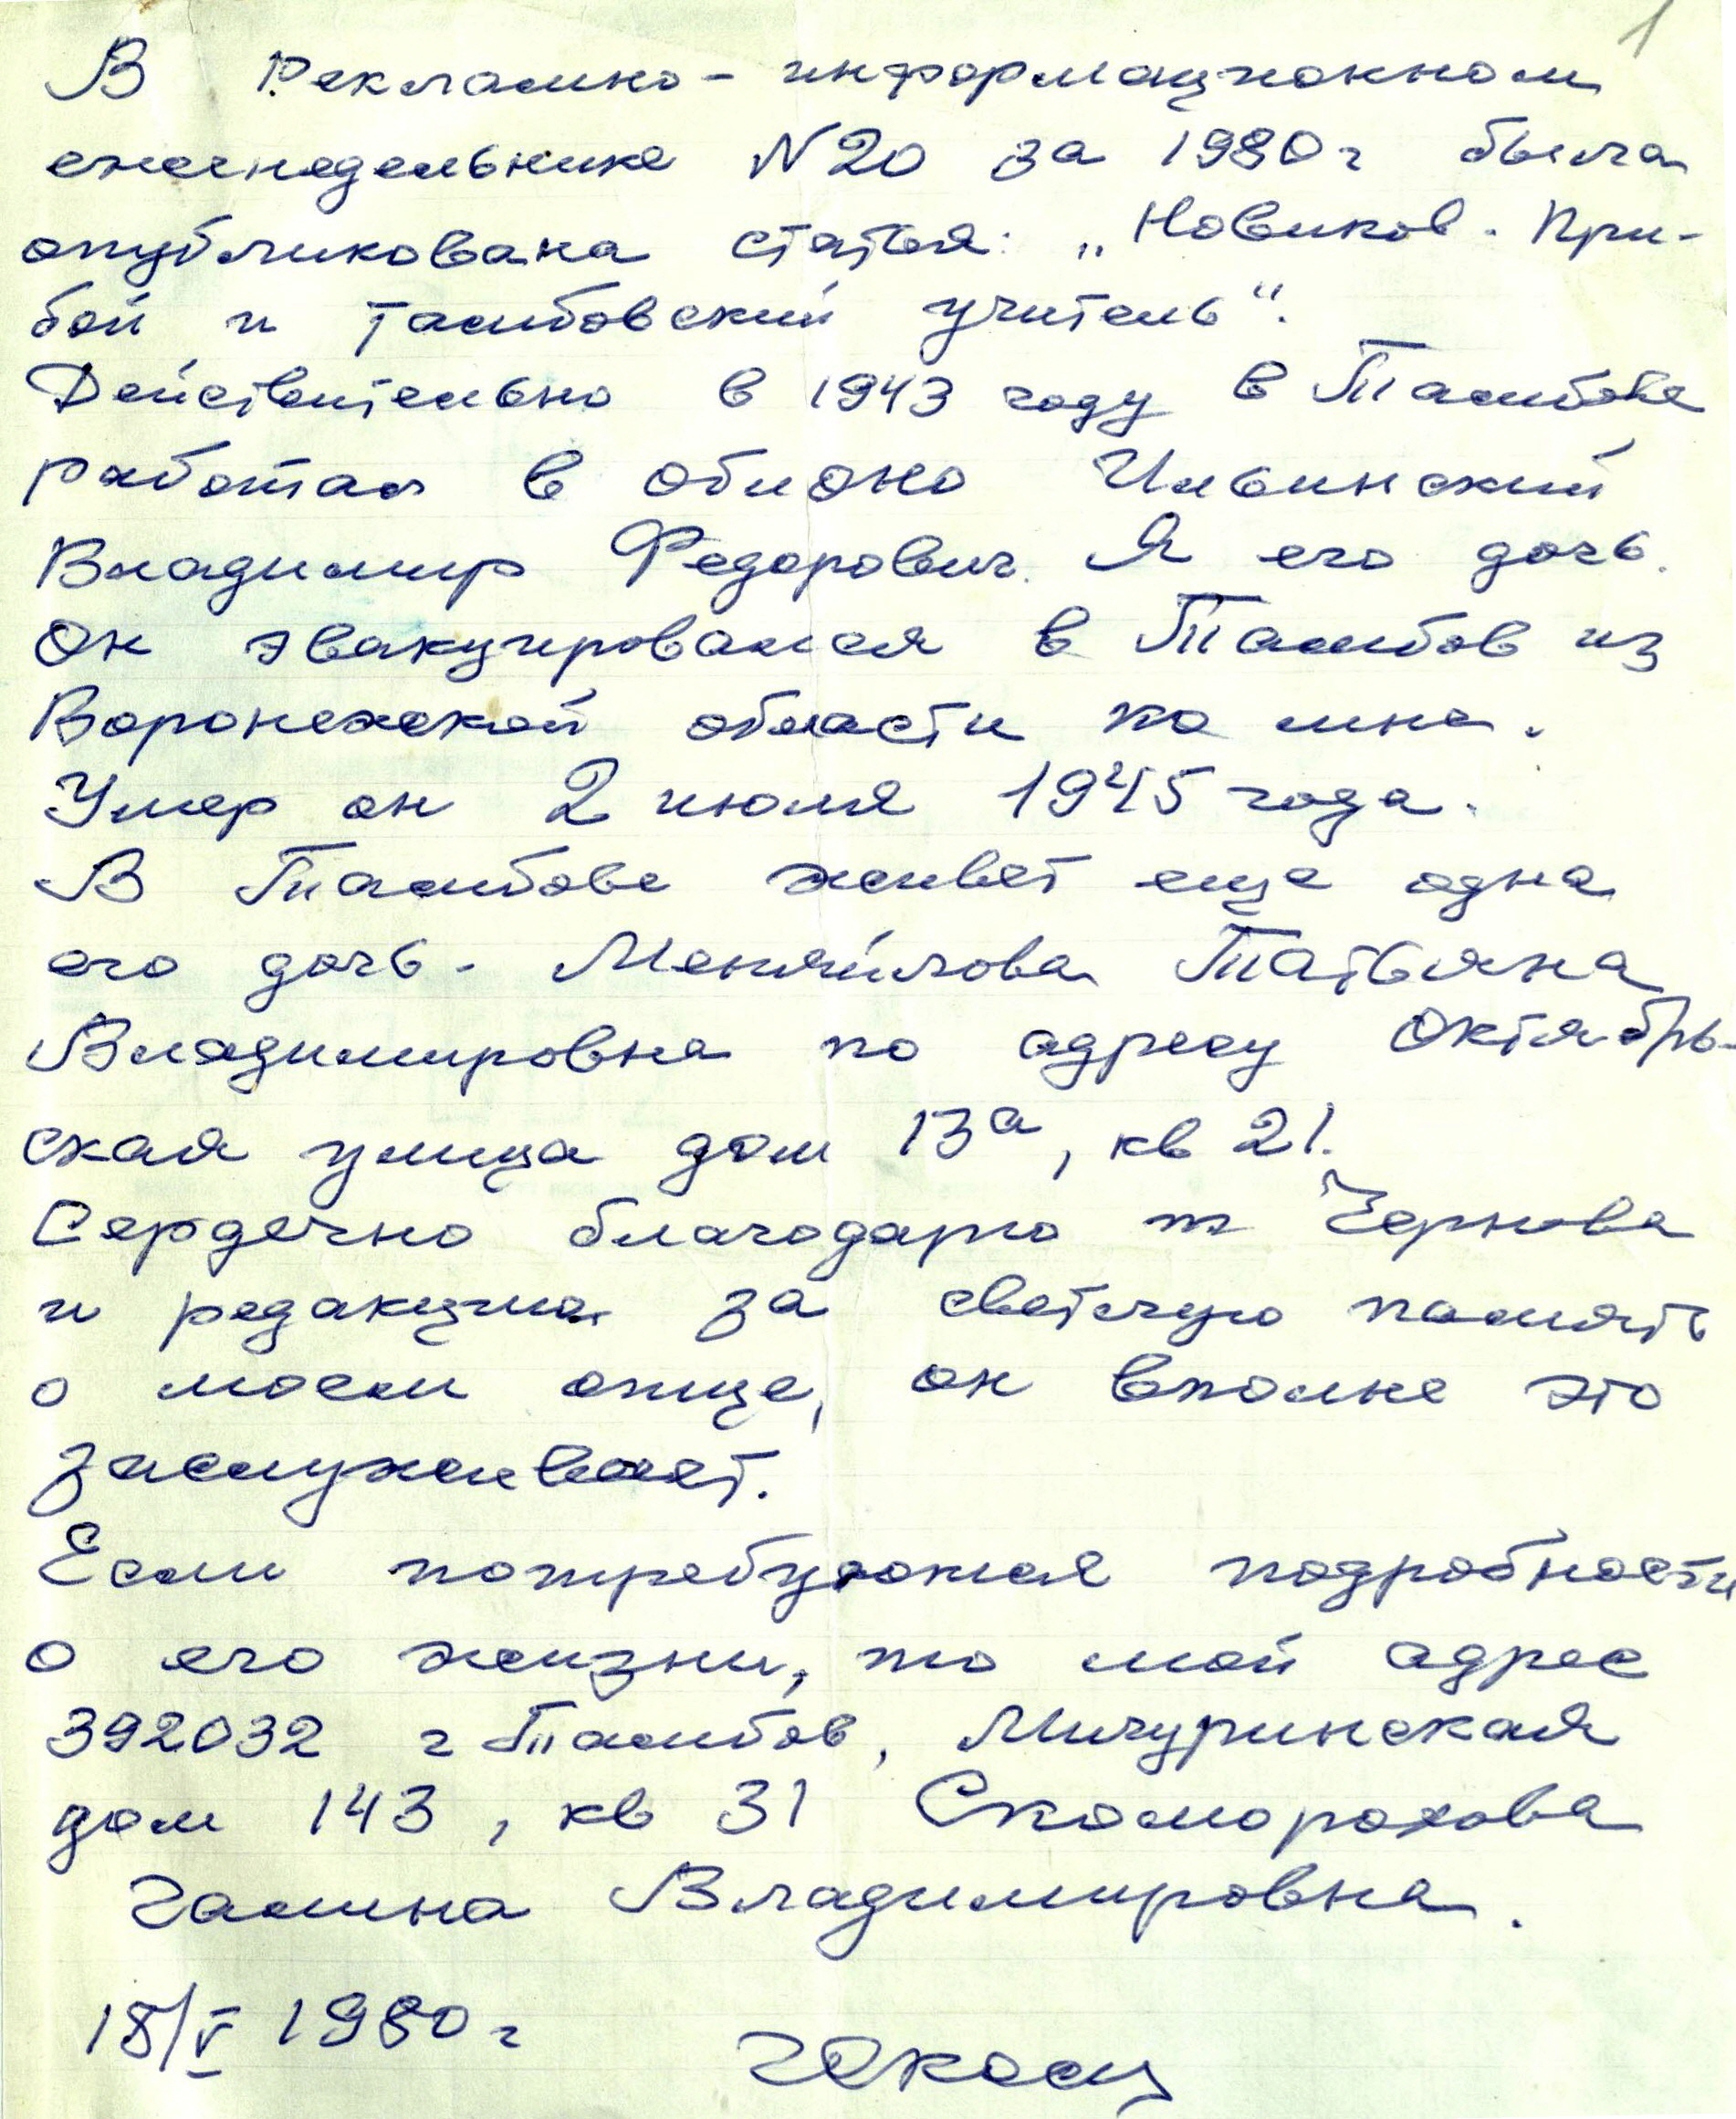 1
В Рекламно-информационном
еженедельнике N 20 за 1980 г была
опубликована статья: „Новиков-При-
бой и тамбовский учитель“.
Действительно в 1943 году в Тамбове
работал в облоно Ильинский
Владимир Федорович. Я его дочь.
Он эвакуировался в Тамбов из
Воронежской области ко мне.
Умер он 2 июля 1945 года.
В Тамбове живет еще одна
его дочь - Меняйлова Татьяна
Владимировна по адресу Октябрь-
ская улица дом 13а, кв 21.
Сердечно благодарю т Чернова
и редакцию за светлую память
о моем отце, он вполне это
заслуживает.
Если потребуются подробности
о его жизни, то мой адрес
392032 г Тамбов, Мичуринская
дом 143, кв 31 Скоморохова
Галина Владимировна.
18/V 1980 г